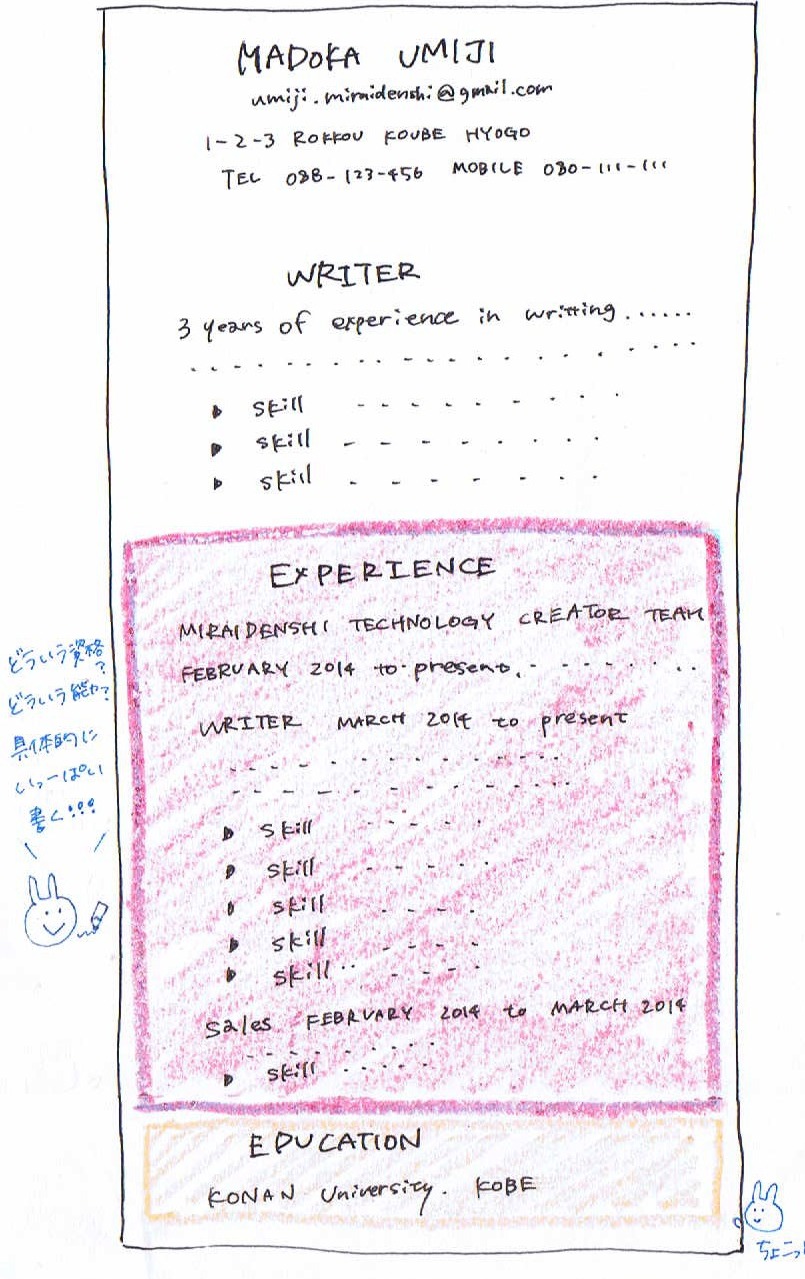 MADOKA UMIJI
umiji.miraidenshi@gmail.com
1-2-3 ROKKOU KOUBE HYOGO
TEL 088-123-456 MOBILE 080-111-111
WRITER
3 years of experience in writting......
skill
skill
skill
EXPERIENCE
MIRAIDENSHI TECHNOLOGY CREATOR TEAM
FEBRUARY 2014 to present.
WRITER MARCH 2014 to present
skill
skill
skill
skill
skill
sales FEBRUARY 2014 to MARCH 2014
skill
EDUCATION
KONAN University. KOBE
どういう資格?
どういう能力?
具体的に
いっーぱい
書く!!!
ちょこっ